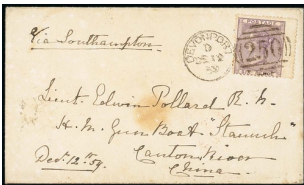 via Southampton
DEVONPORT
D
DE 12
59
POSTAGE
250
Lieut. Edwin Pollard R. N.
H. M. Gun Boat "Staunch"
Canton River
China.
Decr. 12th 59.